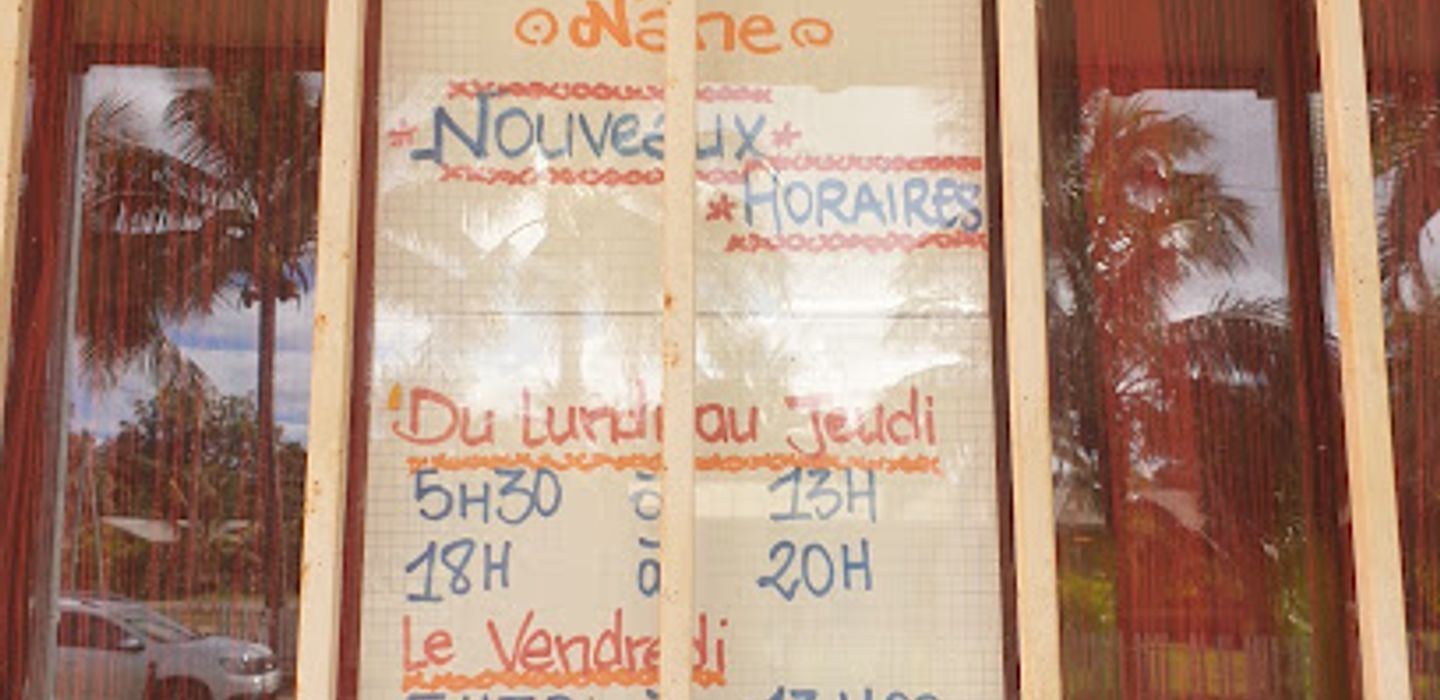 Nane
Nouveaux
HORAIRES
Du Lundi au Jeudi
5H30 à 13H
18H à 20H
Le Vendredi